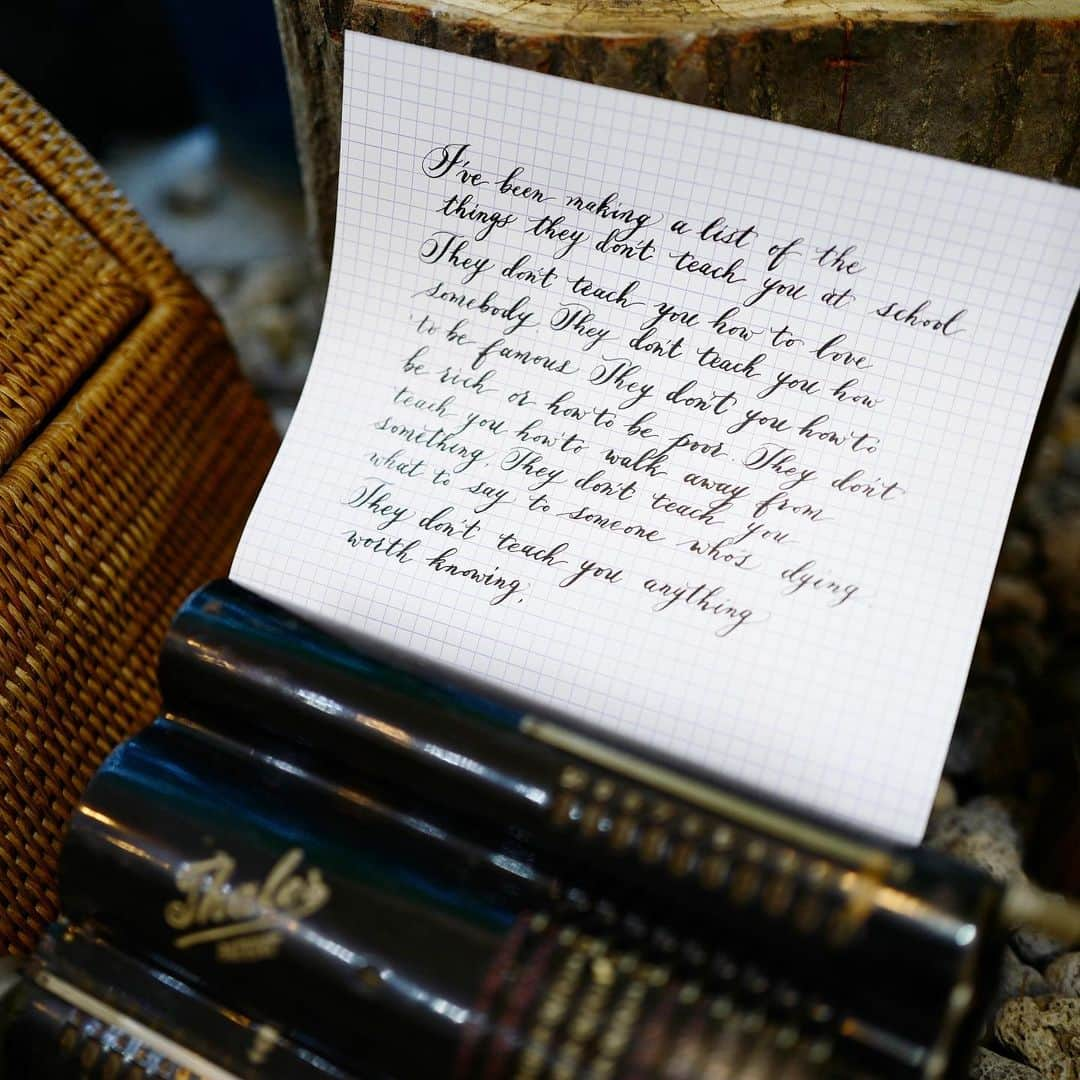 I've been making a list of the
things they don't teach you at school
They don't teach you how to love
somebody They don't teach you how
to be famous They don't you how to
be rich or how to be poor. They don't
teach you how to walk away from
something. They don't teach you
what to say to someone who's dying.
They don't teach you anything
worth knowing.